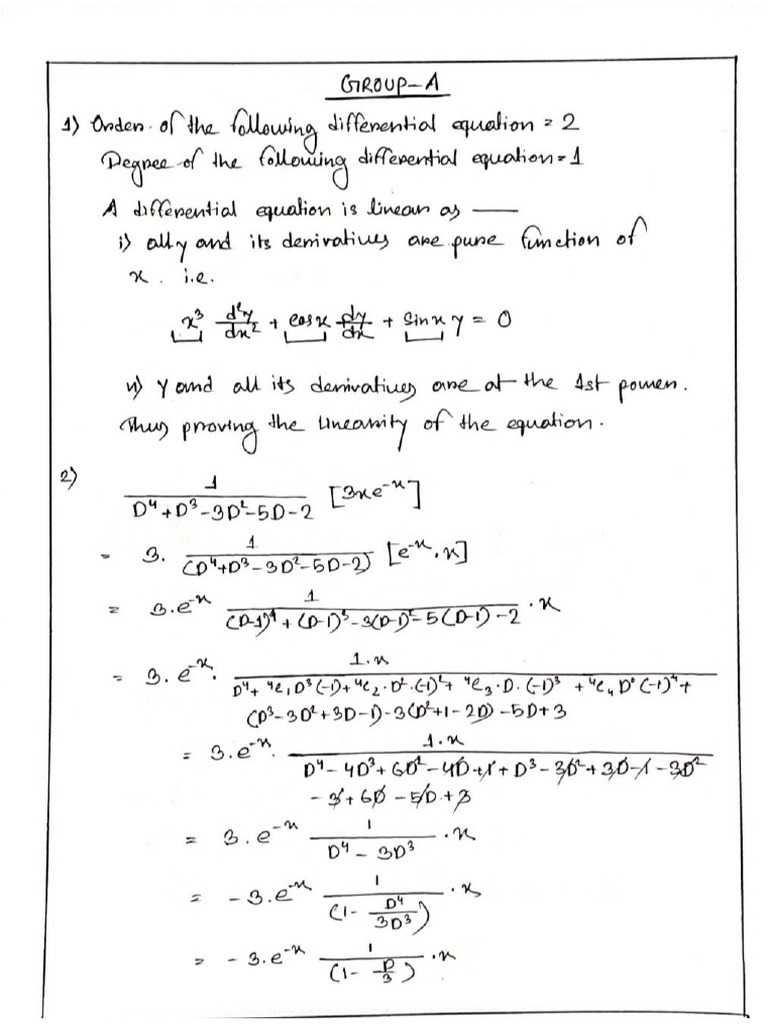 GROUP-A
1) Order of the following differential equation = 2
Degree of the following differential equation = 1
A differential equation is linear as —
i) all y and its derivatives are pure function of
x. i.e.
x³ d²y/dx² + cosx dy/dx + sinx y = 0
ii) y and all its derivatives are at the 1st power.
Thus proving the linearity of the equation.
2)
1/(D⁴+D³-3D²-5D-2) [3xe⁻ˣ]
= 3. 1/(D⁴+D³-3D²-5D-2) [e⁻ˣ.x]
= 3.e⁻ˣ 1/((D-1)⁴+(D-1)³-3(D-1)²-5(D-1)-2) .x
= 3.e⁻ˣ. 1.x/(D⁴+ ⁴c₁D³(-1)+⁴c₂.D².(-1)²+ ⁴c₃.D.(-1)³ +⁴c₄D⁰(-1)⁴+
(D³-3D²+3D-1)-3(D²+1-2D)-5D+3
= 3.e⁻ˣ. 1.x/(D⁴-4D³+6D²-4D+1+D³-3D²+3D-1-3D²
-3+6D-5D+3
= 3.e⁻ˣ 1/(D⁴-3D³) .x
= -3.e⁻ˣ 1/(1- D⁴/3D³) .x
= -3.e⁻ˣ 1/(1- D/3) .x